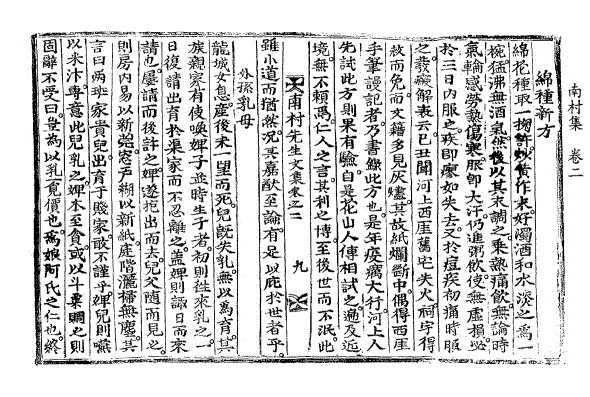 南村集 卷二
綿種新方
綿花種取一掬許炒黃作末好濁酒和水淡之爲一
椀猛沸無酒氣然後以其末調之乘熱痛飮無論時
氣輪感勞熱傷寒服卽大汗仍進粥飮使無虛損必
於三日內服之疾卽瘳如失去又於痘疾初痛時服
之發癍解表云已丑閏河上西厓舊宅失火祠宇得
救而免而文籍多見灰燼其故紙爛斷中偶得西厓
手筆謾記者乃書錄此方也是年疫癘大行河上人
先試此方則果有驗自是花山人傳相試之遍及近
境無不頼焉仁人之言其利之博至後世而不泯此
南村先生文集卷之二 九
雖小道而猶然况其嘉猷至論有足以庇於世者乎
外孫乳母
龍城女息産後未一望而死兒旣失乳無以爲育其
族親家有使喚婢子並時生子者初則往來乳之一
日復請出育於渠家而不忍離之盖婢則諏日而來
請也屢請而後許之婢遂抱出而去兒父随而見之
則房內易以新 窓戶糊以新紙庭階灑掃無塵其
言曰兩班家貴兒出育于賤家敢不謹乎婢兒則嚥
以米汁專意此兒乳之婢本至貪或以斗粟賙之則
固辭不受曰豈爲以乳覓價也爲娘阿氏之仁也終